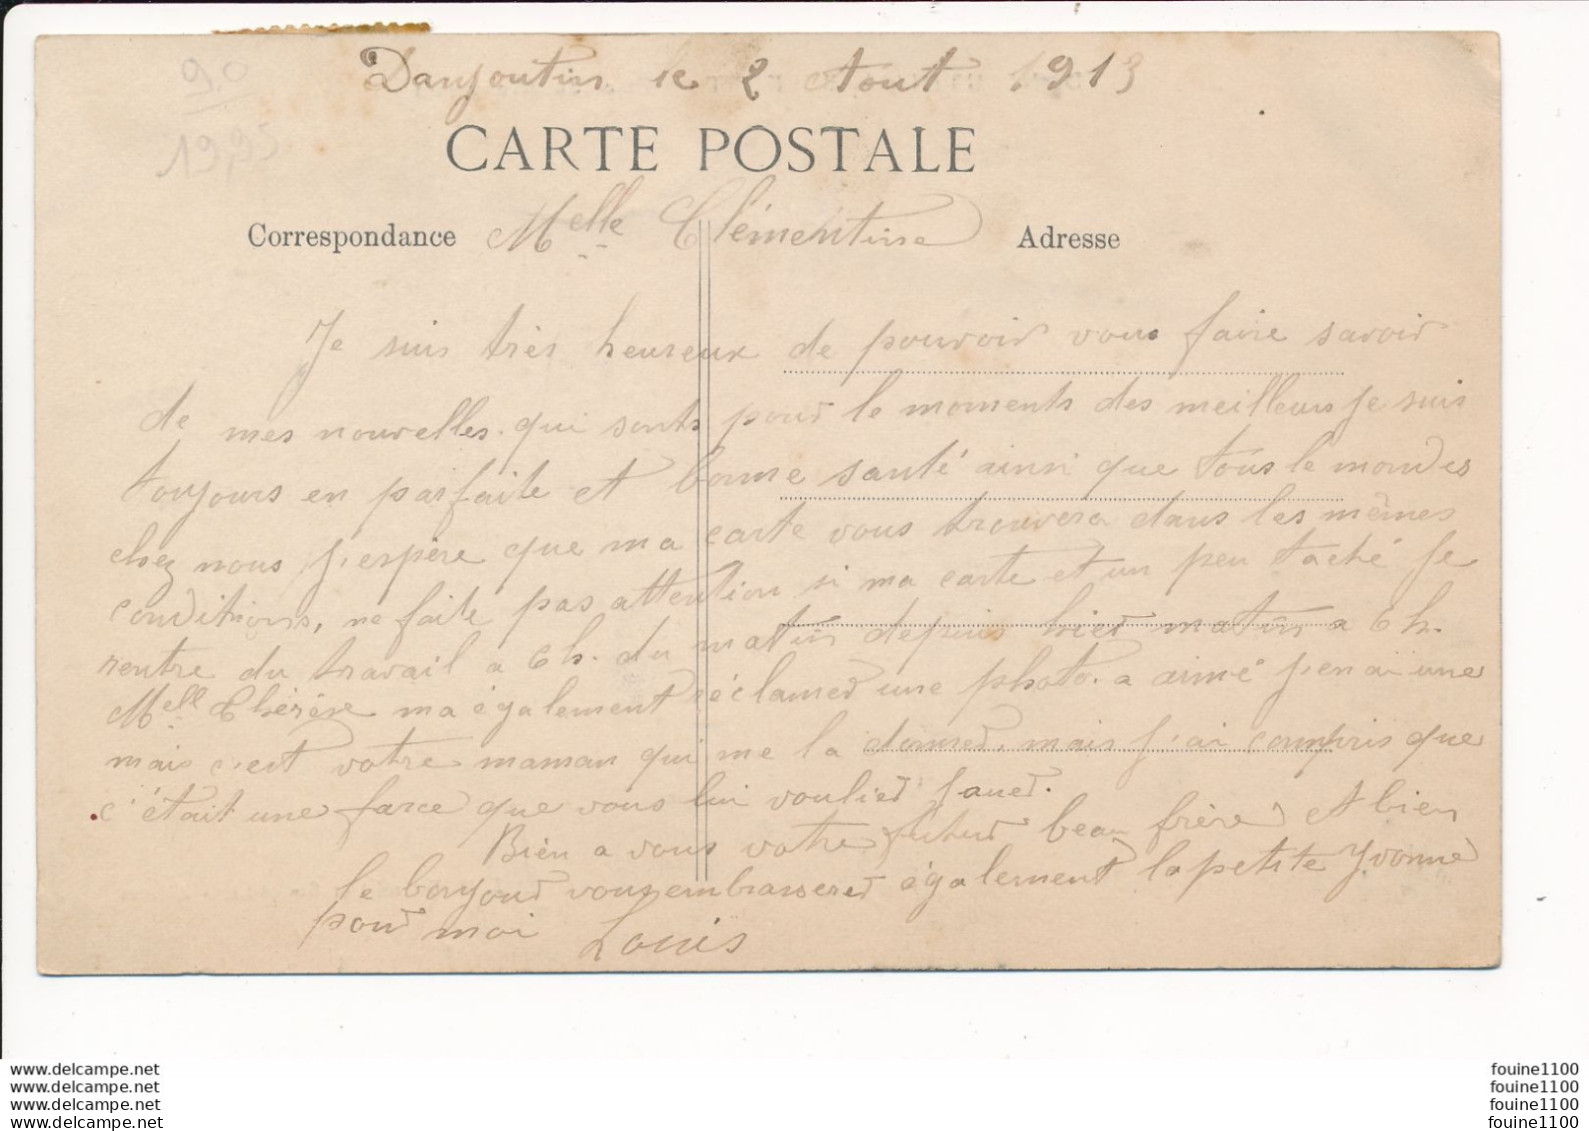 Danjoutin le 2 Aout 1913
90
1995
CARTE POSTALE
Correspondance Melle Clémentine Adresse
Je suis très heureux de pouvoir vous faire savoir
de mes nouvelles. qui sonts pour le moments des meilleurs je suis
toujours en parfaite et bonne santé ainsi que tous le mondes
chez nous j'espère que ma carte vous trouvera dans les mêmes
conditions, ne faite pas attention si ma carte et un peu taché je
rentre du travail a 6 h. du matin depuis hier matin a 6 h.
Melle Thérèse ma également réclamer une photo. a aimé j'en ai une
mais c'est votre maman qui me la donner. mais j'ai compris que
c'était une farce que vous lui voulier jouer.
Bien a vous votre futur beau frère et bien
le bonjour vous embrasserer également la petite Yvonne
pour moi Louis
www.delcampe.net
www.delcampe.net
www.delcampe.net
www.delcampe.net
fouine1100
fouine1100
fouine1100
fouine1100